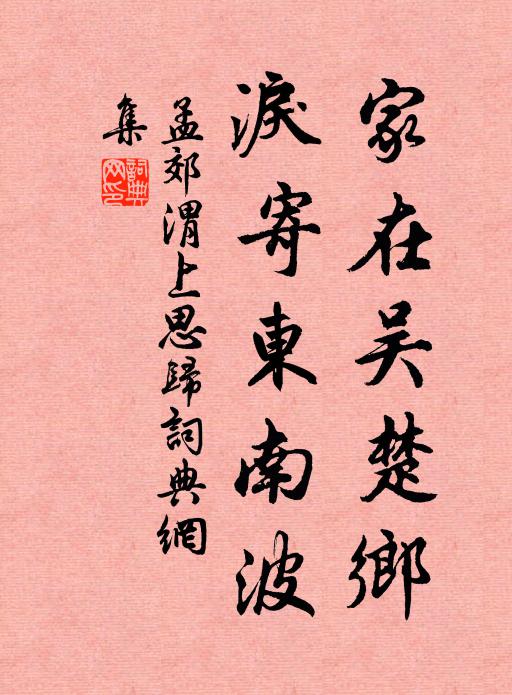 家在吴楚鄉
淚寄東南波
孟郊渭上思歸詞典網
集
詞典网印